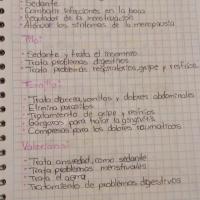 - Sedante
- Combatir infecciones en la boca
- Regulador de la menstruación
- Aliviar los síntomas de la menopausia
- Sedante y trata el insomnio
- Trata problemas digestivos
- Trata problemas respiratorios, gripe y resfríos
- Trata diarrea, vomitos y dolores abdominales
- Elimina parasitos
- Tratamiento de gripe y resfrios
- Gárgaras para tratar la gingivitis
- Compresas para los dolores reumaticos
Valeriana:
- Trata ansiedad, como sedante
- Trata problemas menstruales
- Trata el asma
- Tratamiento de problemas digestivos